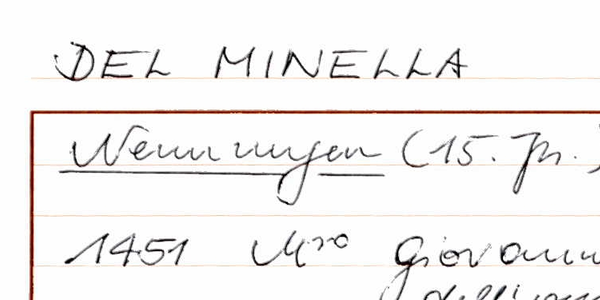 DEL MINELLA
Nennungen (15. Jh.)
1451 Mro Giovann